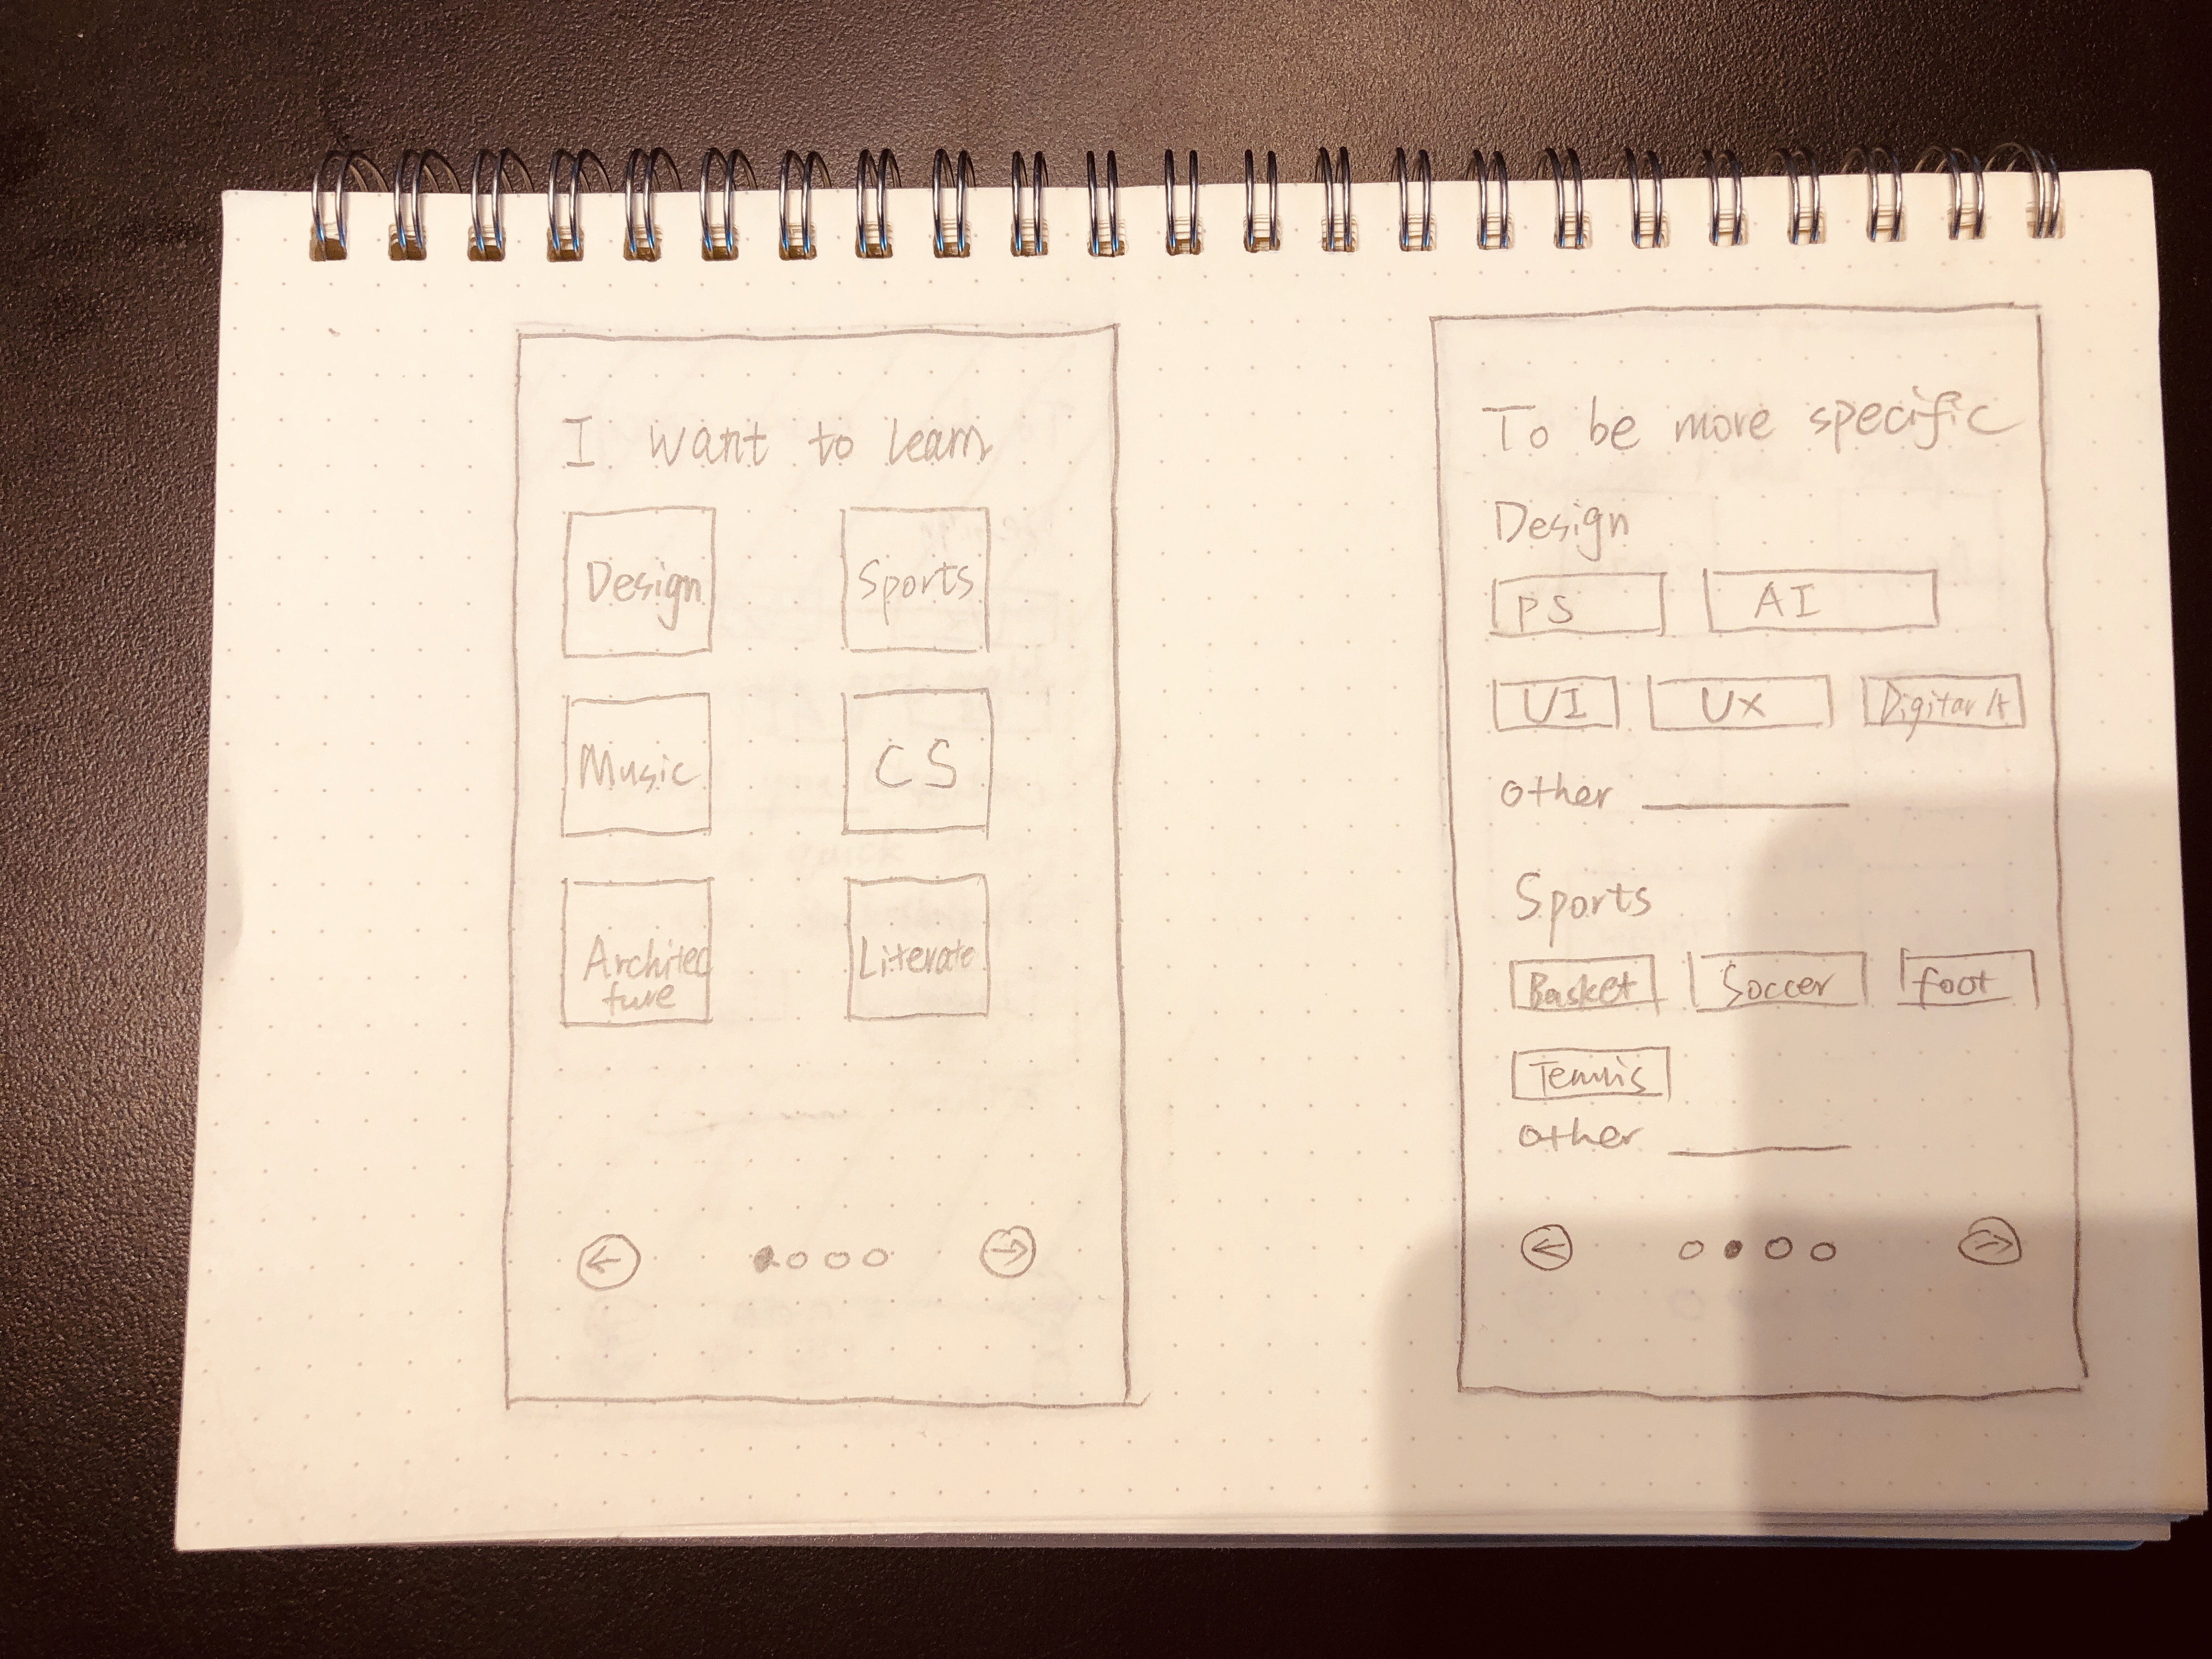 I want to learn
Design Sports
Music CS
Architec
ture
Literate
To be more specific
Design
PS AI
UI UX
other
Sports
Basket Soccer foot
Tennis
other